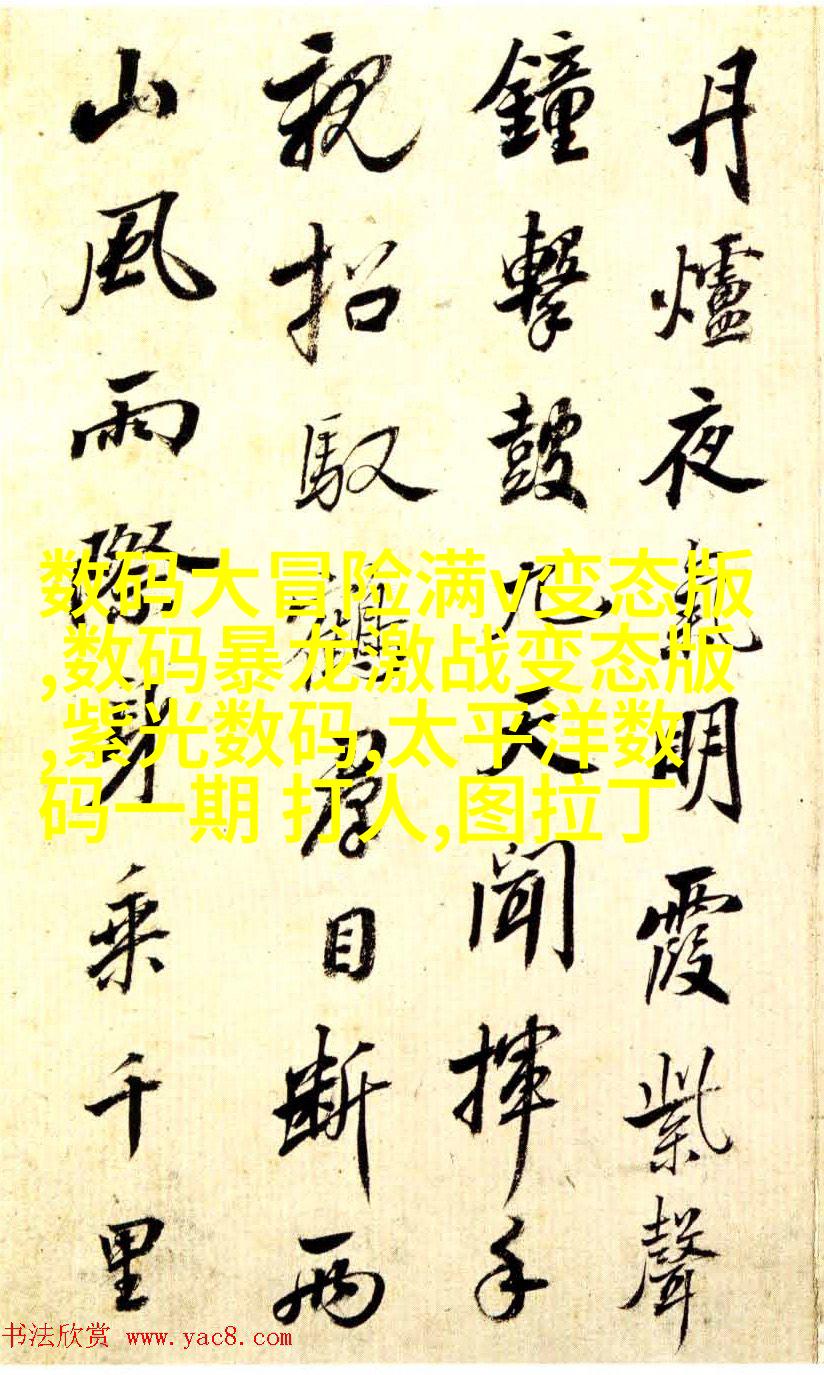 丹爐夜氣明霞紫聲
鐘擊鼓九天聞揮手
親招馭鶴群目斷兩
山風雨際身乘千里
数码大冒险满v变态版
,数码暴龙激战变态版
,紫光数码,太平洋数
码一期 打人,图拉丁
书法欣赏 www.yac8.com